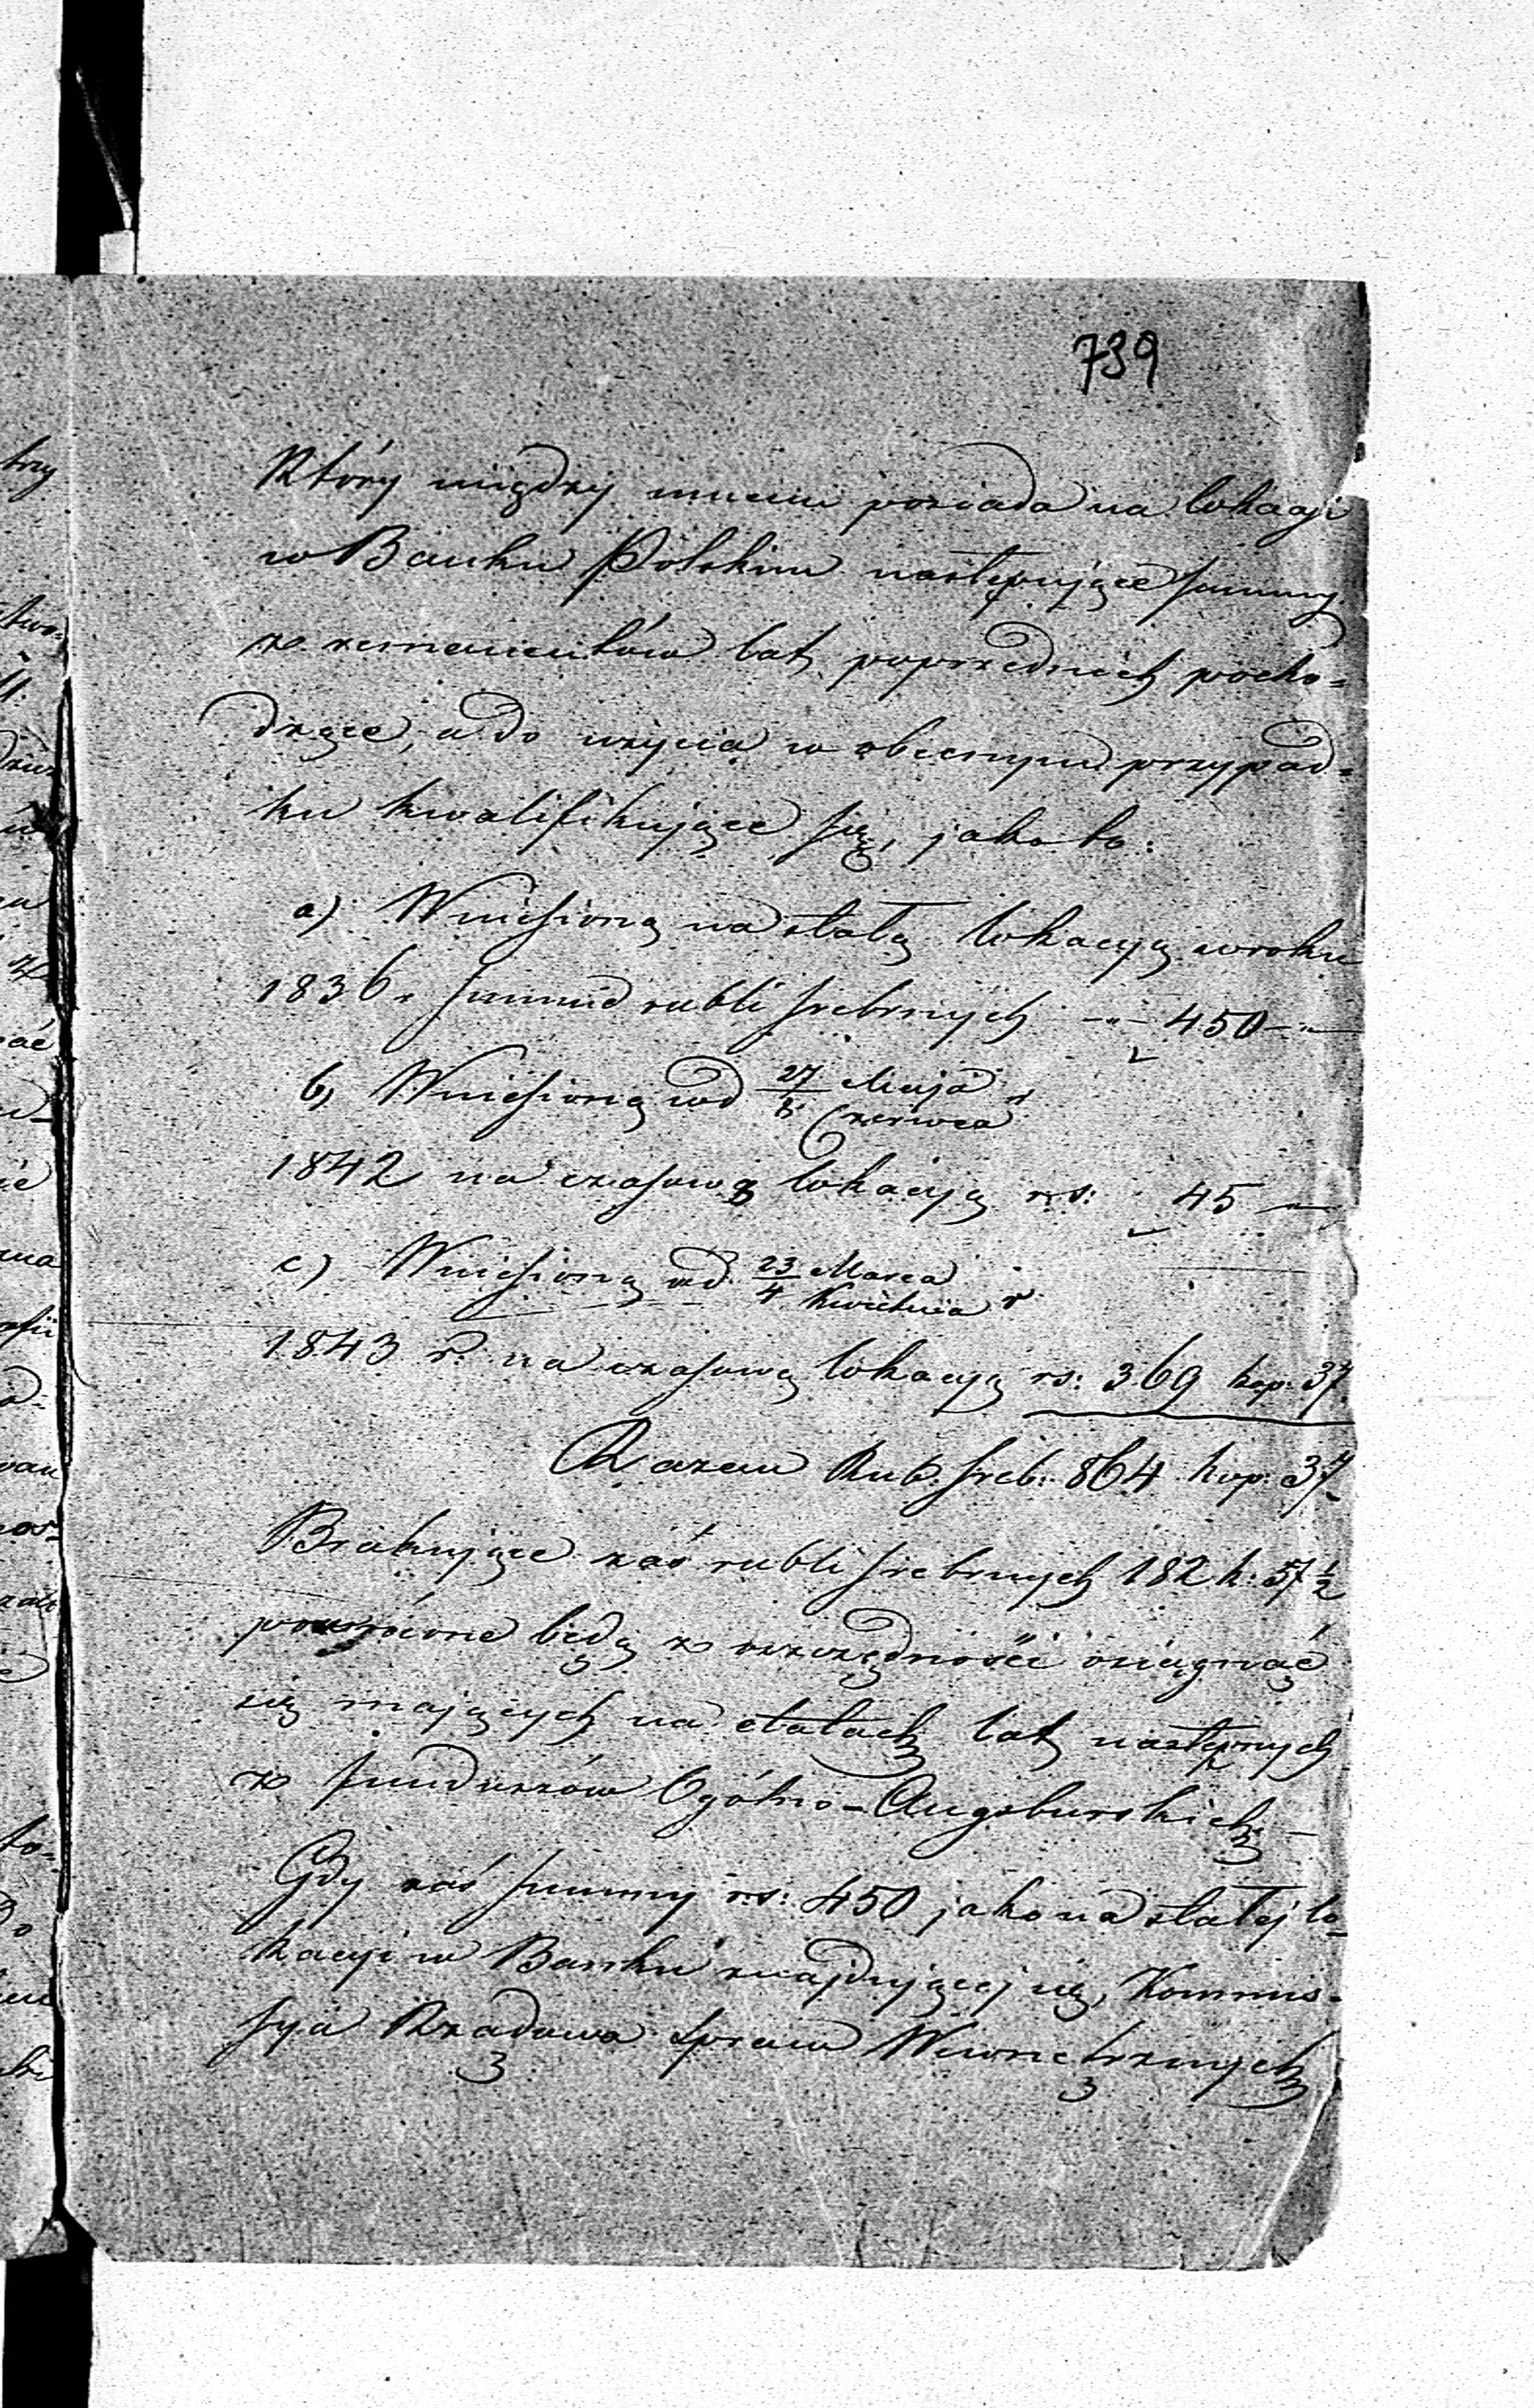 739
Który między innemi posiada na lokacji
w Banku Polskim następujące summy
z remanentów lat poprzednich pocho=
dzące, a do użycia w obecnym przypad=
ku kwalifikujące się, jako to:
a) Wniesioną na stałą lokacyą w roku
1836 r summę rubli srebrnych -„- 450 -„-
b) Wniesioną od 27 Maja / 8 Czerwca r
1842 na czasową lokacyą rs: 45 -„-
c) Wniesioną od 23 Marca / 4 Kwietnia r
1843 r. na czasową lokacyą rs: 369 kop: 37
Razem Rub. sreb: 864 kop: 37
Brakujące zaś rubli srebrnych 182 k: 57 ½
powrócone będą z oszczędności osiągnąć
się mających na etatach lat następnych
z funduszów Ogólno-Augsburskich –
Gdy zaś summy rs: 450 jako na stałej lo=
kacyi w Banku znajdującej się, Kommis=
sya Rządowa Spraw Wewnętrznych